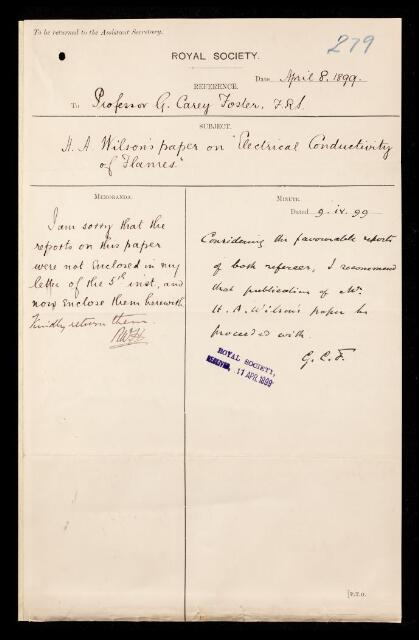 To be returned to the Assistant Secretary.
279
ROYAL SOCIETY.
Date April 8. 1899.
REFERENCE.
To Professor G. Carey Foster, F.R.S.
SUBJECT.
H. A. Wilson's paper on "Electrical Conductivity
of Flames."
MEMORANDA.
I am sorry that the
reports on this paper
were not enclosed in my
letter of the 5th inst, and
now enclose them herewith.
Kindly return them.
MINUTE.
Dated 9. iv. 99
Considering the favourable reports
of both referees, I recommend
that publication of Mr.
H. A. Wilson's paper be
proceeded with.
G. C. F.
ROYAL SOCIETY,
RECEIVED, 11 APR. 1899
[P.T.O.